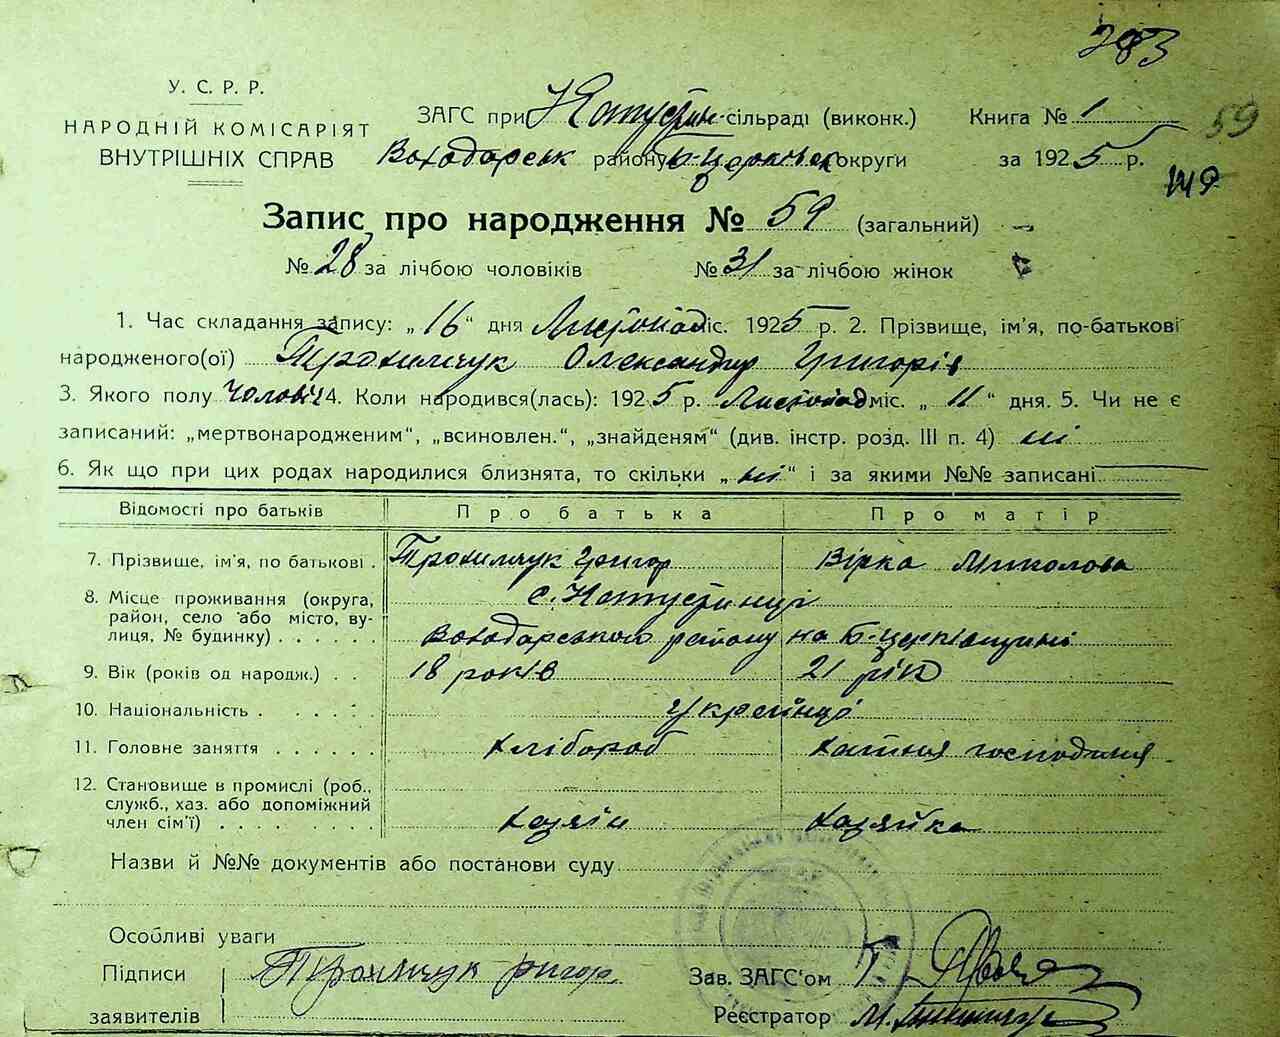 283
У. С. Р. Р.
НАРОДНІЙ КОМІСАРІЯТ
ВНУТРІШНІХ СПРАВ
ЗАГС при -сільраді (виконк.) Книга № 1
59
району Б-Церківськ округи за 1925 р.
149
Запис про народження № 59 (загальний)
№ 28 за лічбою чоловіків № 31 за лічбою жінок
1. Час складання запису: „16" дня Листопад міс. 1925 р. 2. Прізвище, ім'я, по-батькові
народженого(ої) Трохимчук Олександир Григорів
3. Якого полу Чоловіч 4. Коли народився(лась): 1925 р. Листопад міс. „11" дня. 5. Чи не є
записаний: „мертвонародженим", „всиновлен.", „знайденям" (див. інстр. розд. III п. 4) ні
6. Як що при цих родах народилися близнята, то скільки „ні" і за якими №№ записані
Відомості про батьків Про батька Про матір
7. Прізвище, ім'я, по батькові . Трохимчук Григор Вірка Миколова
8. Місце проживання (округа,
район, село або місто, ву-
лиця, № будинку) . . . . . .
району на Б-церківщині
9. Вік (років од народж.) . . 18 років 21 рік
10. Національність . . . . . . Українці
11. Головне заняття . . . . . . хлібороб хатня господиня
12. Становище в промислі (роб.,
служб., хаз. або допоміжний
член сім'ї) . . . . . . . . . хазяїн хазяйка
Назви й №№ документів або постанови суду
Особливі уваги
Підписи Трохимчук Григор. Зав. ЗАГС'ом
заявителів Реєстратор М.